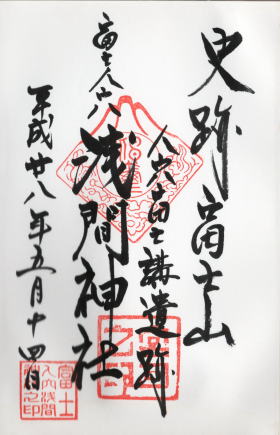 史跡富士山
人穴富士講遺跡
富士人穴
浅間神社
平成廿八年五月十四日
富士
人穴浅間
神社之印